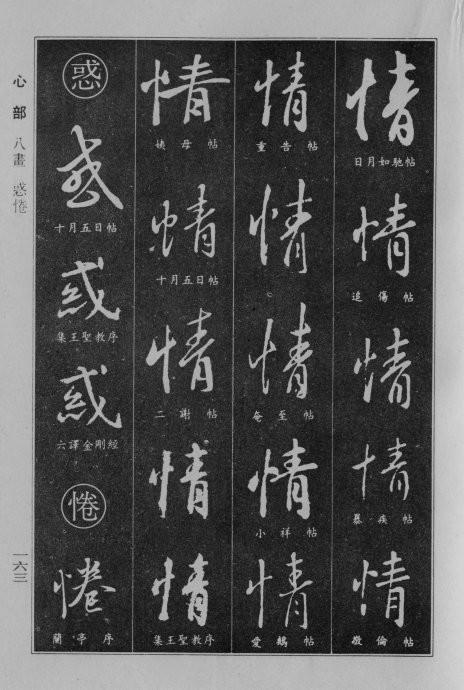 情
日月如馳帖
情
追傷帖
情
情
暴疾帖
情
敬倫帖
情
重告帖
情
情
奄至帖
情
小祥帖
情
愛鵝帖
情
姨母帖
情
十月五日帖
情
二謝帖
情
情
集王聖教序
惑
惑
十月五日帖
惑
集王聖教序
惑
六譯金剛經
惓
惓
蘭亭序
心部 八畫 惑惓
一六三